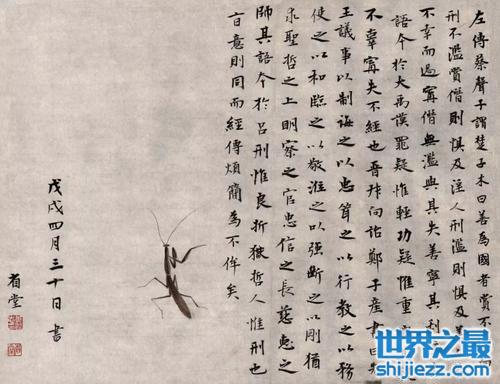 左傳蔡聲子謂楚子木曰善為國者賞不
刑不濫賞僭則懼及淫人刑濫則懼及善
不幸而過寧僭無濫與其失善寧其利
語今於大禹謨罪疑惟輕功疑惟重
不辜寧失不經也晉叔向詒鄭子產書曰
王議事以制誨之以忠耸之以行教之以務
使之以和臨之以敬涖之以強斷之以剛猶
求聖哲之上明察之官忠信之長慈惠之
師其語今於呂刑惟良折獄哲人惟刑也
旨意則同而經傳煩簡為不侔矣
戊戌四月三十日書
省堂
世界之最
shijiezz.com